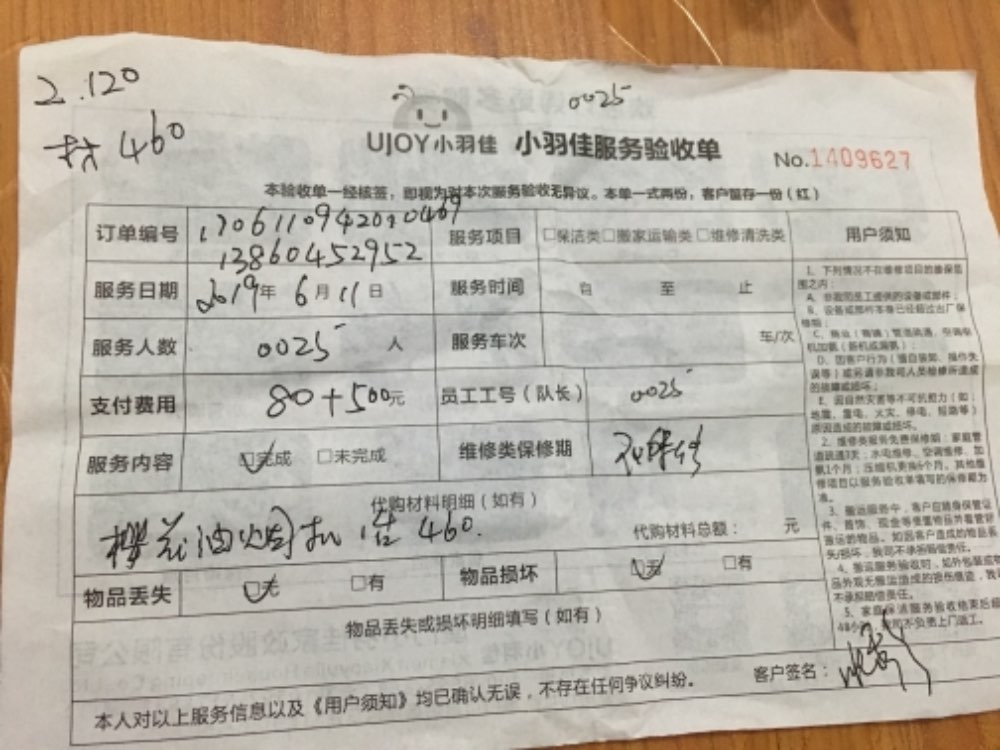 2.120
0025
460
UJOY小羽佳 小羽佳服务验收单
No.1409627
本验收单一经核签，即视为对本次服务验收无异议。本单一式两份，客户留存一份（红）
订单编号
13860452952
服务项目 □保洁类□搬家运输类□维修清洗类
用户须知
服务日期 2019年 6月 11日
服务时间 自 至 止
服务人数 0025 人
服务车次 车/次
支付费用 80+500元
员工工号（队长） 0025
服务内容 □完成 □未完成
维修类保修期
代购材料明细（如有）
樱花油烟机 460.
代购材料总额： 元
物品丢失 □无 □有
物品损坏 □无 □有
物品丢失或损坏明细填写（如有）
本人对以上服务信息以及《用户须知》均已确认无误，不存在任何争议纠纷。
客户签名：
1、下列情况不在维修项目的维保范
围之内：
A、非我司员工提供的设备或部件；
B、设备或部件本身已经超过出厂保
修期；
D、因客户行为（擅自装卸、操作失
误等）或另请非我司人员检修所造成
的故障或损坏；
E、因自然灾害等不可抗力（如：
地震、雷电、火灾、停电、短路等）
原因造成的故障或损坏。
2、维修类服务免费保修期：家庭管
道疏通3天；水电维修、空调维修、加
氨1个月；压缩机更换6个月。其他维
修项目以服务验收单填写的保修期为
准。
3、搬运服务中，客户应随身保管证
件、首饰、现金等贵重物品并看管好
搬运的物品。如因客户造成的物品丢
失/损坏，我司不承担赔偿责任。
4、搬运服务验收时，如外包装或物
品外观无搬运造成的损伤痕迹，我
不承担赔偿责任。
5、家庭保洁服务验收结束后超